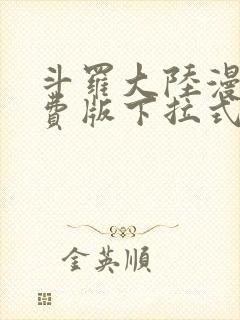 斗羅大陸漫
費版下拉式
金英順